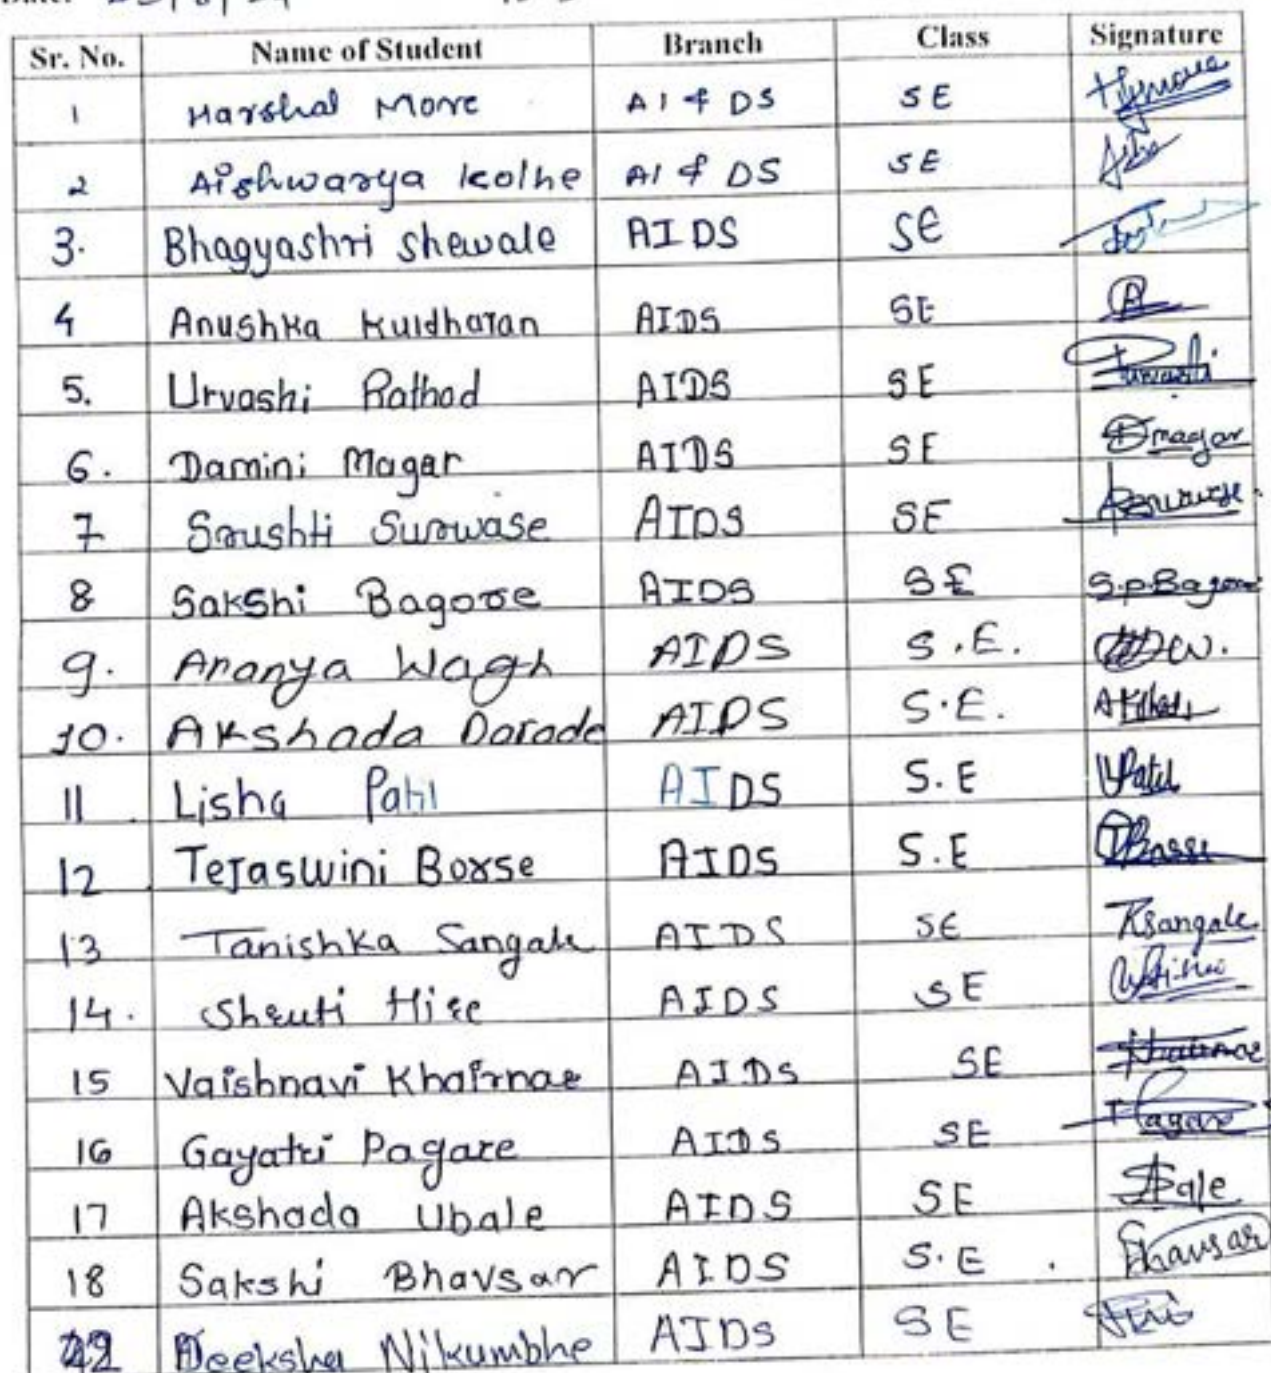 Sr. No. Name of Student Branch Class Signature
1 Harshal More AI & DS SE
2 Aishwarya Kolhe AI & DS SE
3. Bhagyashri Shewale AIDS SE
4 Anushka Kuidharan AIDS SE
5. Urvashi Rathod AIDS SE
6. Damini Magar AIDS SE Dmagar
7 Srushti Surwase AIDS SE
8 Sakshi Bagore AIDS SE S.P.Bagore
9. Ananya Wagh AIDS S.E.
10. Akshada Darade AIDS S.E.
11. Lisha Patil AIDS S.E Patil
12 Tejaswini Borse AIDS S.E
13 Tanishka Sangale AIDS SE Tsangale
14. Shruti Hire AIDS SE
15 Vaishnavi Khairnar AIDS SE
16 Gayatri Pagare AIDS SE Pagare
17 Akshada Ubale AIDS SE
18 Sakshi Bhavsar AIDS S.E. Bhavsar
Deeksha Nikumbhe AIDS SE